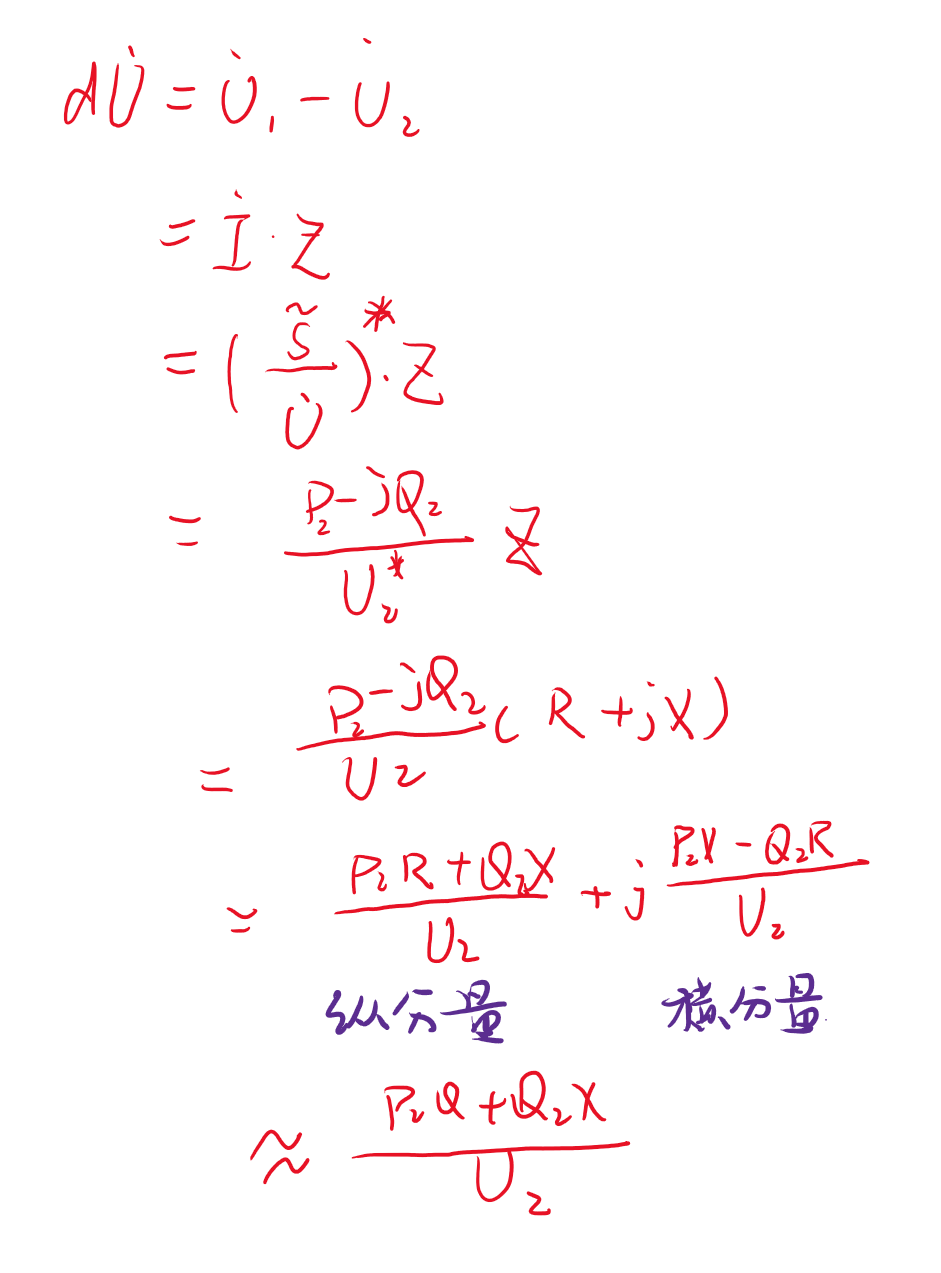 dU̇ = U̇₁ - U̇₂
= İ · Z
= ( S̃ / U̇ )* · Z
= (P₂ - jQ₂) / U₂* Z
= (P₂ - jQ₂) / U₂ ( R + jX )
= (P₂R + Q₂X) / U₂ + j (P₂X - Q₂R) / U₂
纵分量 横分量
≈ (P₂Q + Q₂X) / U₂